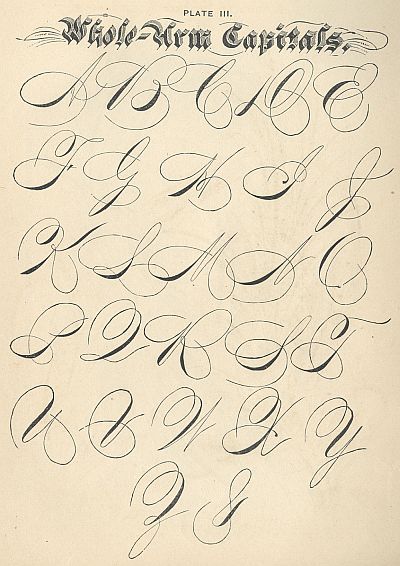 PLATE III.
Whole-Arm Capitals.
A B C D E
F G H I J
K L M N O
P Q R S T
U V W X Y
Z &